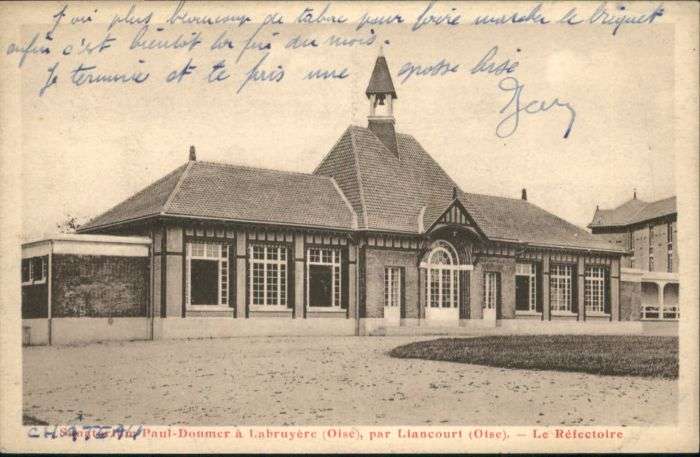 j'ai plus beaucoup de tabac pour faire marcher le briquet
enfin c'est bientôt la fin du mois
Je termine et te pris une grosse bise
CHATEAU
Sanatorium Paul-Doumer à Labruyère (Oise), par Liancourt (Oise). - Le Réfectoire